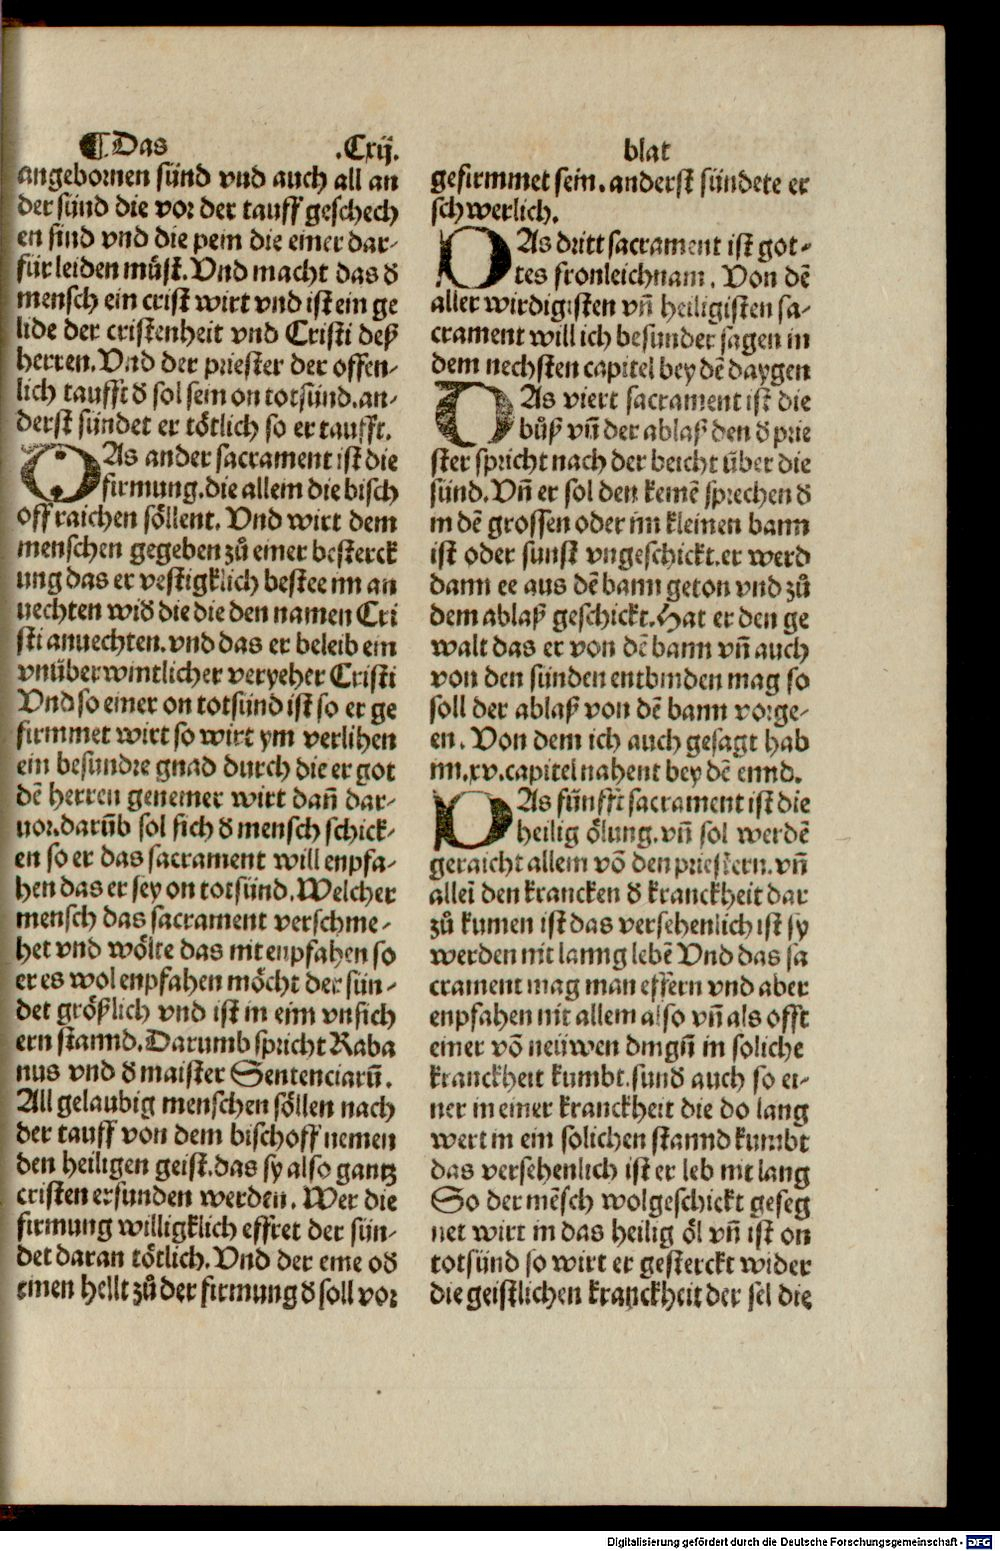 ¶ Das .Cxij. blat
angebornen sünd vnd auch all an
der sünd die vor der tauff geschech
en sind vnd die pein die einer dar-
für leiden müst. Vnd macht das d̕
mensch ein crist wirt vnd ist ein ge
lide der cristenheit vnd Cristi deß
herren. Vnd der priester der offen-
lich taufft d̕ sol sein on totsünd. an-
derst sündet er tötlich so er taufft.
DAs ander sacrament ist die
firmung. die allein die bisch
off raichen söllent. Vnd wirt dem
menschen gegeben zů einer besterck
ung das er vestigklich bestee im an
uechten wid̕ die die den namen Cri
sti anuechten. vnd das er beleib ein
vnüberwintlicher veryeher Cristi
Vnd so einer on totsünd ist so er ge
firmmet wirt so wirt ym verlihen
ein besundre gnad durch die er got
dē herren genemer wirt dañ dar-
uor. darūb sol sich d̕ mensch schick-
en so er das sacrament will enpfa-
hen das er sey on totsünd. Welcher
mensch das sacrament verschme-
het vnd wölte das nit enpfahen so
er es wol enpfahen möcht der sün-
det größlich vnd ist in eim vnsich
ern stannd. Darumb spricht Raba
nus vnd d̕ maister Sentenciarū.
All gelaubig menschen söllen nach
der tauff von dem bischoff nemen
den heiligen geist. das sy also gantz
cristen erfunden werden. Wer die
firmung willigklich effret der sün-
det daran tötlich. Vnd der eine od̕
einen hellt zů der firmung d̕ soll vor
gefirmmet sein. anderst sündete er
schwerlich.
DAs dritt sacrament ist got-
tes fronleichnam. Von dē
aller wirdigisten vñ heiligisten sa-
crament will ich besunder sagen in
dem nechsten capitel bey dē daygen
DAs viert sacrament ist die
bůß vñ der ablaß den d̕ prie
ster spricht nach der beicht über die
sünd. Vñ er sol den keinē sprechen d̕
in dē grossen oder im kleinen bann
ist oder sunst vngeschickt. er werd
dann ee aus dē bann geton vnd zů
dem ablaß geschickt. Hat er den ge
walt das er von dē bann vñ auch
von den sünden entbinden mag so
soll der ablaß von dē bann vorge-
en. Von dem ich auch gesagt hab
im .xv. capitel nahent bey dē ennd.
DAs fünfft sacrament ist die
heilig ölung. vñ sol werdē
geraicht allein vō den priestern. vñ
alleī den krancken d̕ kranckheit dar
zů kumen ist das versehenlich ist sy
werden nit lanng lebē Vnd das sa
crament mag man effern vnd aber
enpfahen nit allein also vñ als offt
einer vō neüwen dingū in soliche
kranckheit kumbt. sund̕ auch so ei-
ner in einer kranckheit die do lang
wert in ein solichen stannd kumbt
das versehenlich ist er leb nit lang
So der mēsch wolgeschickt geseg
net wirt in das heilig öl vñ ist on
totsünd so wirt er gesterckt wider
die geistlichen kranckheit der sel die
Digitalisierung gefördert durch die Deutsche Forschungsgemeinschaft - DFG